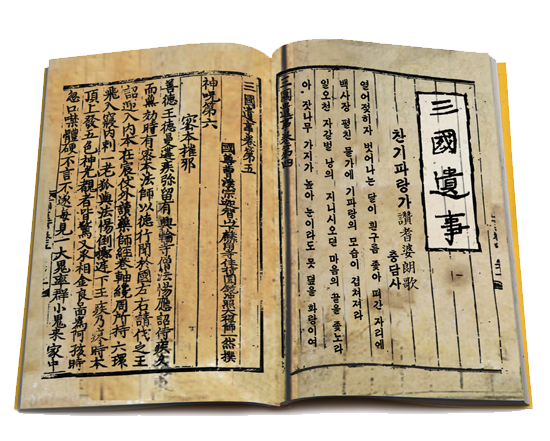 三國遺事
찬기파랑가 讚耆婆朗歌
충담사
열어젖히자 벗어나는 달이 흰구름 좇아 떠간 자리에
백사장 펼친 물가에 기파랑의 모습이 겹쳐져라
일오천 자갈벌 낭의 지니시오던 마음의 끝을 좇노라
아, 잣나무 가지가 높아 눈이라도 못 덮을 화랑이여
三國遺事卷第四
三國遺事卷第五
國尊曹溪宗迦智山下麟角寺住持圓鏡冲照大禪師一然撰
神呪第六
密本摧邪
善德王德曼遘疾弥留有興輪寺僧法惕應詔侍疾久
而無効時有密本法師以德行聞於國左右請代之王
詔迎入內本在宸仗外讀藥師經卷軸纔周所持六環
飛入寢內刺一老狐與法惕倒擲庭下王疾乃瘳時本
頂上發五色神光覩者皆驚又承相金良圖爲阿孩時
忽口噤體硬不言不遂每見一大鬼率群小鬼来家中